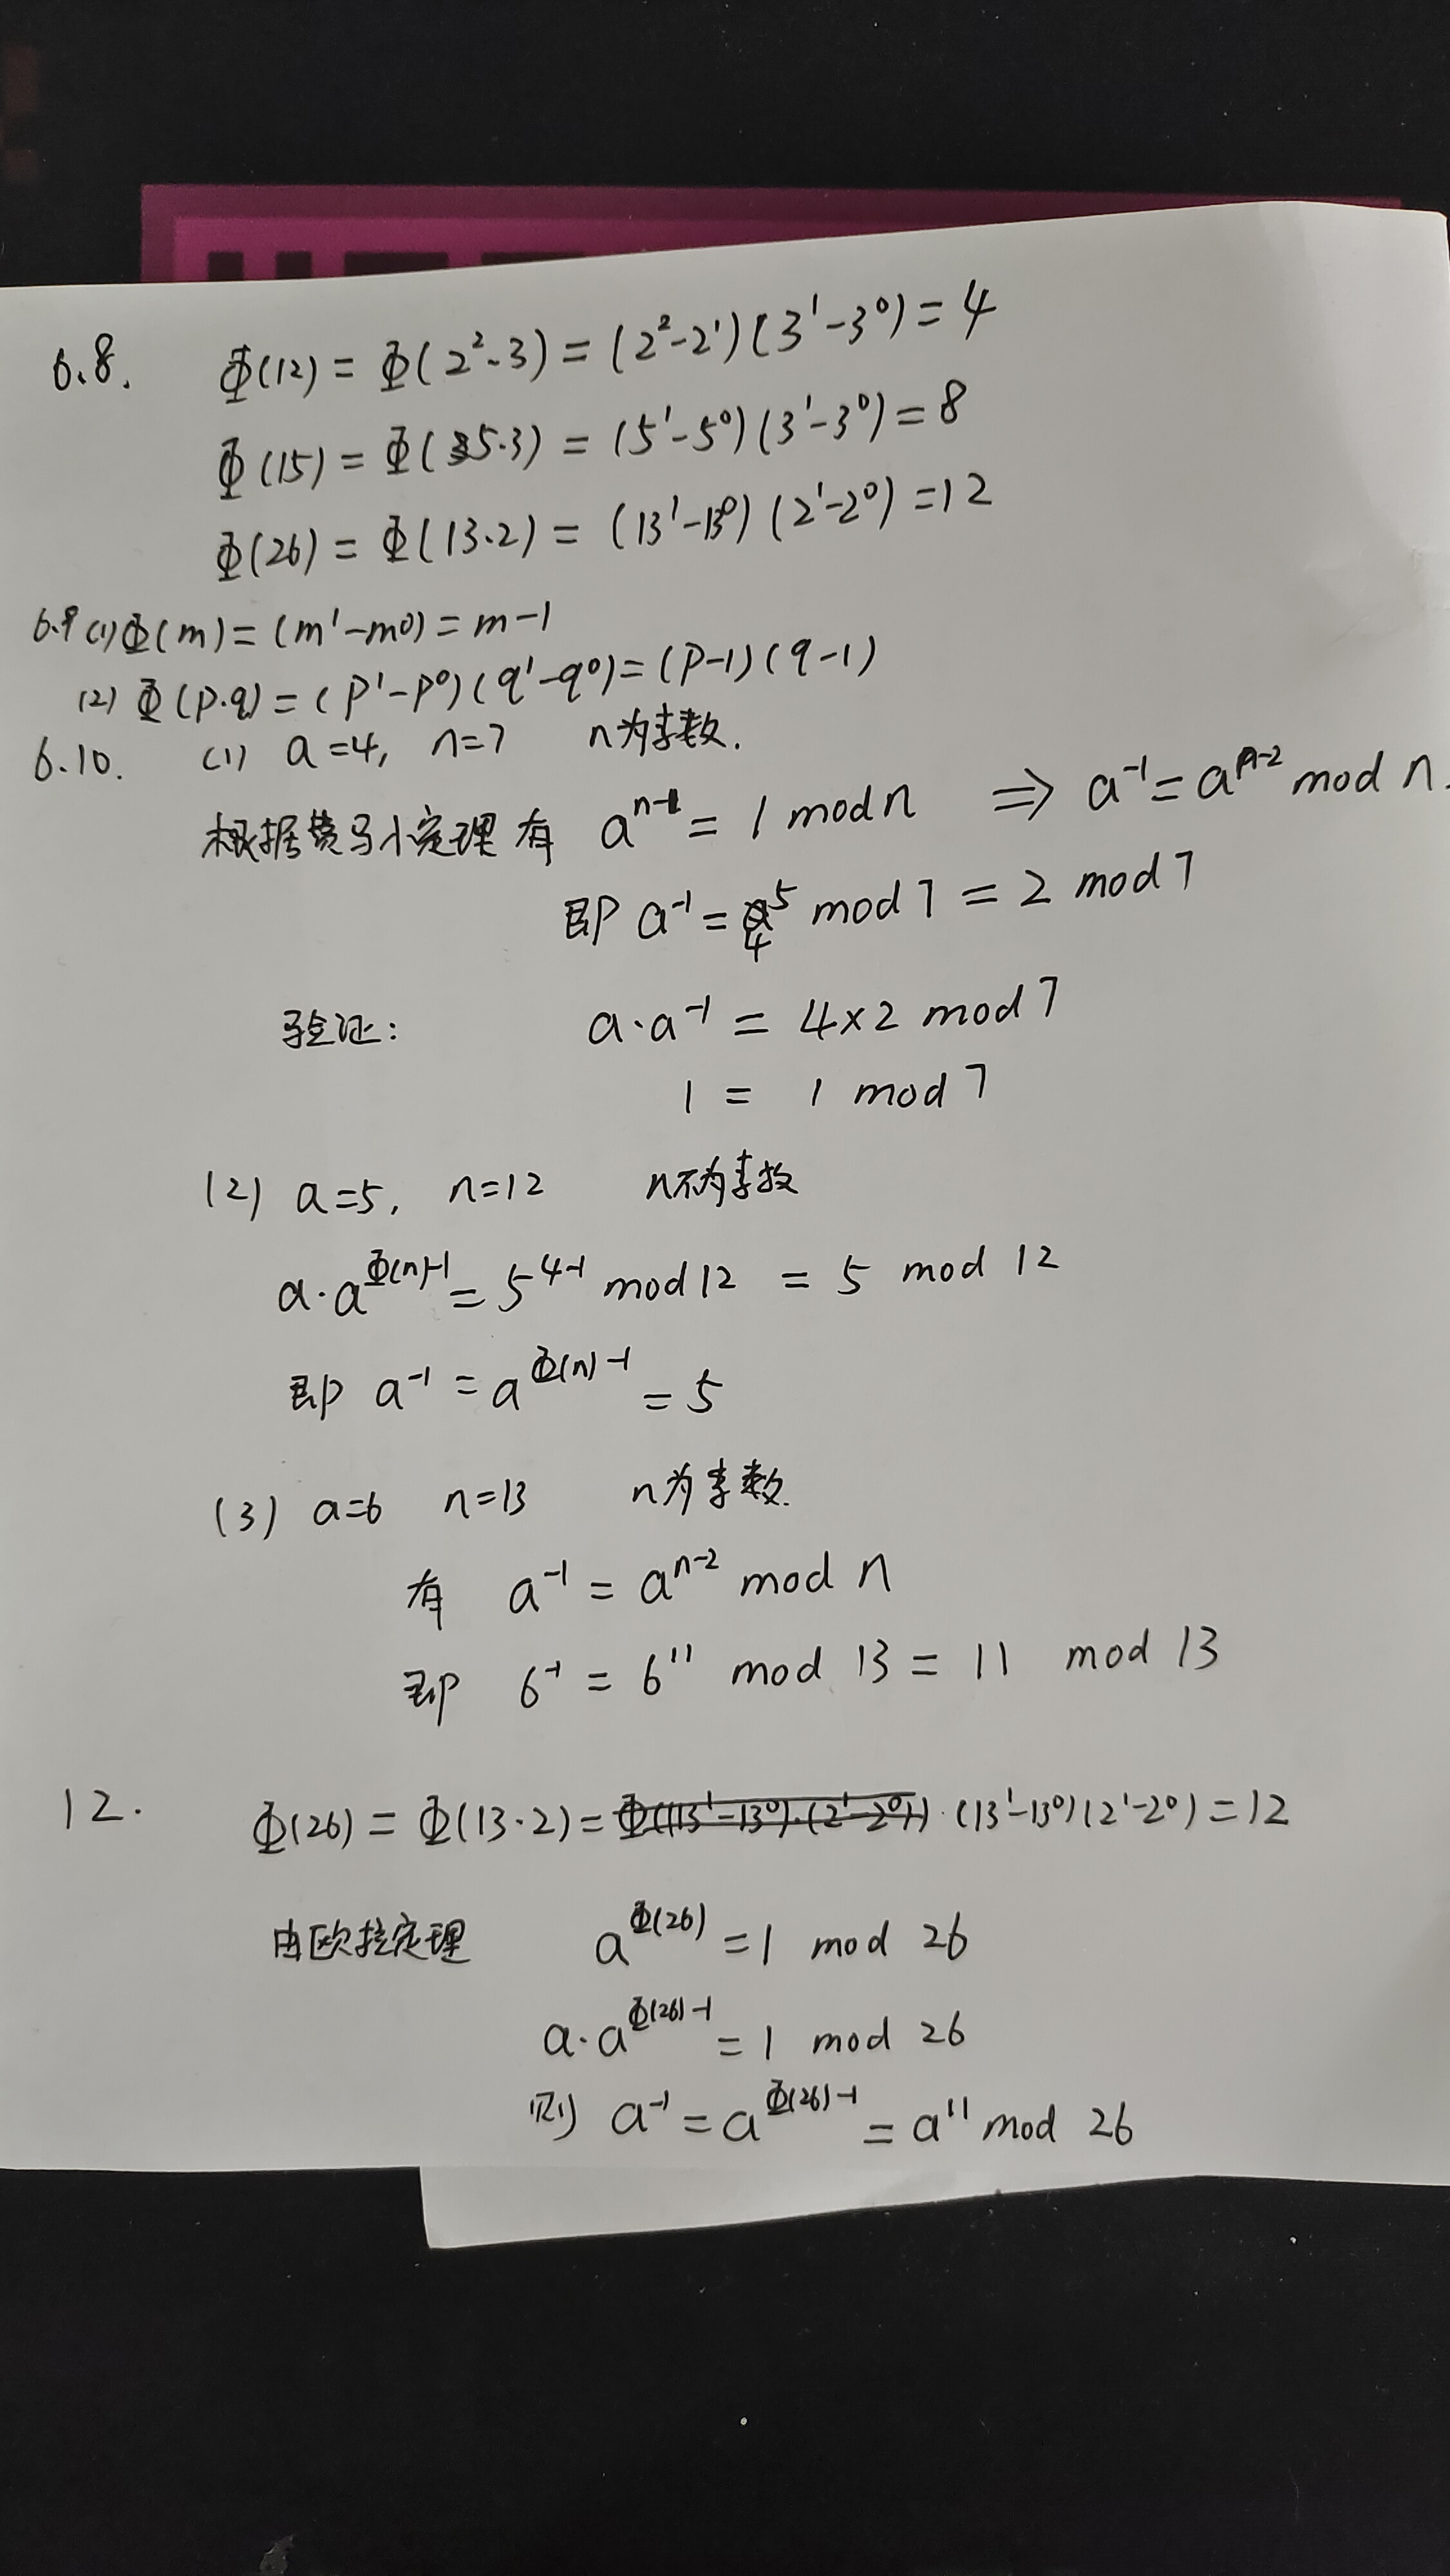 6.8. Φ(12) = Φ(2²·3) = (2²-2¹)(3¹-3⁰) = 4
Φ(15) = Φ(5·3) = (5¹-5⁰)(3¹-3⁰) = 8
Φ(26) = Φ(13·2) = (13¹-13⁰)(2¹-2⁰) = 12
6.9 (1) Φ(m) = (m¹-m⁰) = m-1
(2) Φ(p·q) = (p¹-p⁰)(q¹-q⁰) = (p-1)(q-1)
6.10. (1) a=4, n=7 n为素数.
根据费马小定理有 aⁿ⁻¹ = 1 mod n ⇒ a⁻¹ = aⁿ⁻² mod n.
即 a⁻¹ = 4⁵ mod 7 = 2 mod 7
验证: a·a⁻¹ = 4×2 mod 7
1 = 1 mod 7
(2) a=5, n=12 n不为素数
a·a^(Φ(n)-1) = 5⁴⁻¹ mod 12 = 5 mod 12
即 a⁻¹ = a^(Φ(n)-1) = 5
(3) a=6 n=13 n为素数.
有 a⁻¹ = aⁿ⁻² mod n
即 6⁻¹ = 6¹¹ mod 13 = 11 mod 13
12. Φ(26) = Φ(13·2) = Φ((13¹-13⁰)·(2¹-2⁰)) · (13¹-13⁰)(2¹-2⁰) = 12
由欧拉定理 a^Φ(26) = 1 mod 26
a·a^(Φ(26)-1) = 1 mod 26
则 a⁻¹ = a^(Φ(26)-1) = a¹¹ mod 26